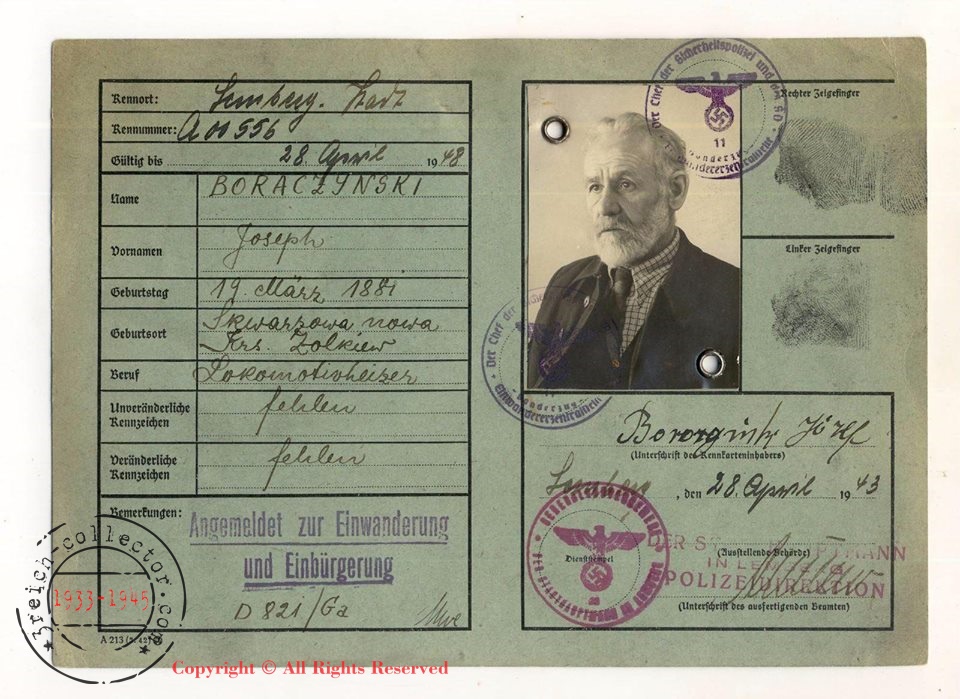 Kennort: Lemberg. Stadt
Kennummer: A 00 556
Gültig bis 28. April 1948
Name BORACZYNSKI
Vornamen Joseph
Geburtstag 19. März 1881
Geburtsort Skwarzowa nowa
Krs. Zolkiew
Beruf Lokomotivheizer
Unveränderliche Kennzeichen fehlen
Veränderliche Kennzeichen fehlen
Bemerkungen:
Angemeldet zur Einwanderung
und Einbürgerung
D 821/Ga
A 213
Der Chef der Sicherheitspolizei und des SD
11
Sonderzug
Einwandererzentralstelle
Rechter Zeigefinger
Linker Zeigefinger
Der Chef der
Sonderzug
Einwandererzentralstelle
Józef
(Unterschrift des Kennkarteninhabers)
Lemberg, den 28. April 1943
DER STADTHAUPTMANN
(Ausstellende Behörde)
IN LEMBERG
Dienststempel
POLIZEIDIREKTION
(Unterschrift des ausfertigenden Beamten)
3reich-collector.com
1933-1945
Copyright © All Rights Reserved